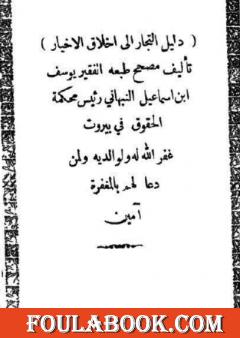 ( دليل التجار الى اخلاق الاخيار )
تأليف مصحح طبعه الفقير يوسف
ابن اسماعيل النبهاني رئيس محكمة
الحقوق في بيروت
غفر الله له ولوالديه ولمن
دعا لهم بالمغفرة
آمين
FOULABOOK.COM